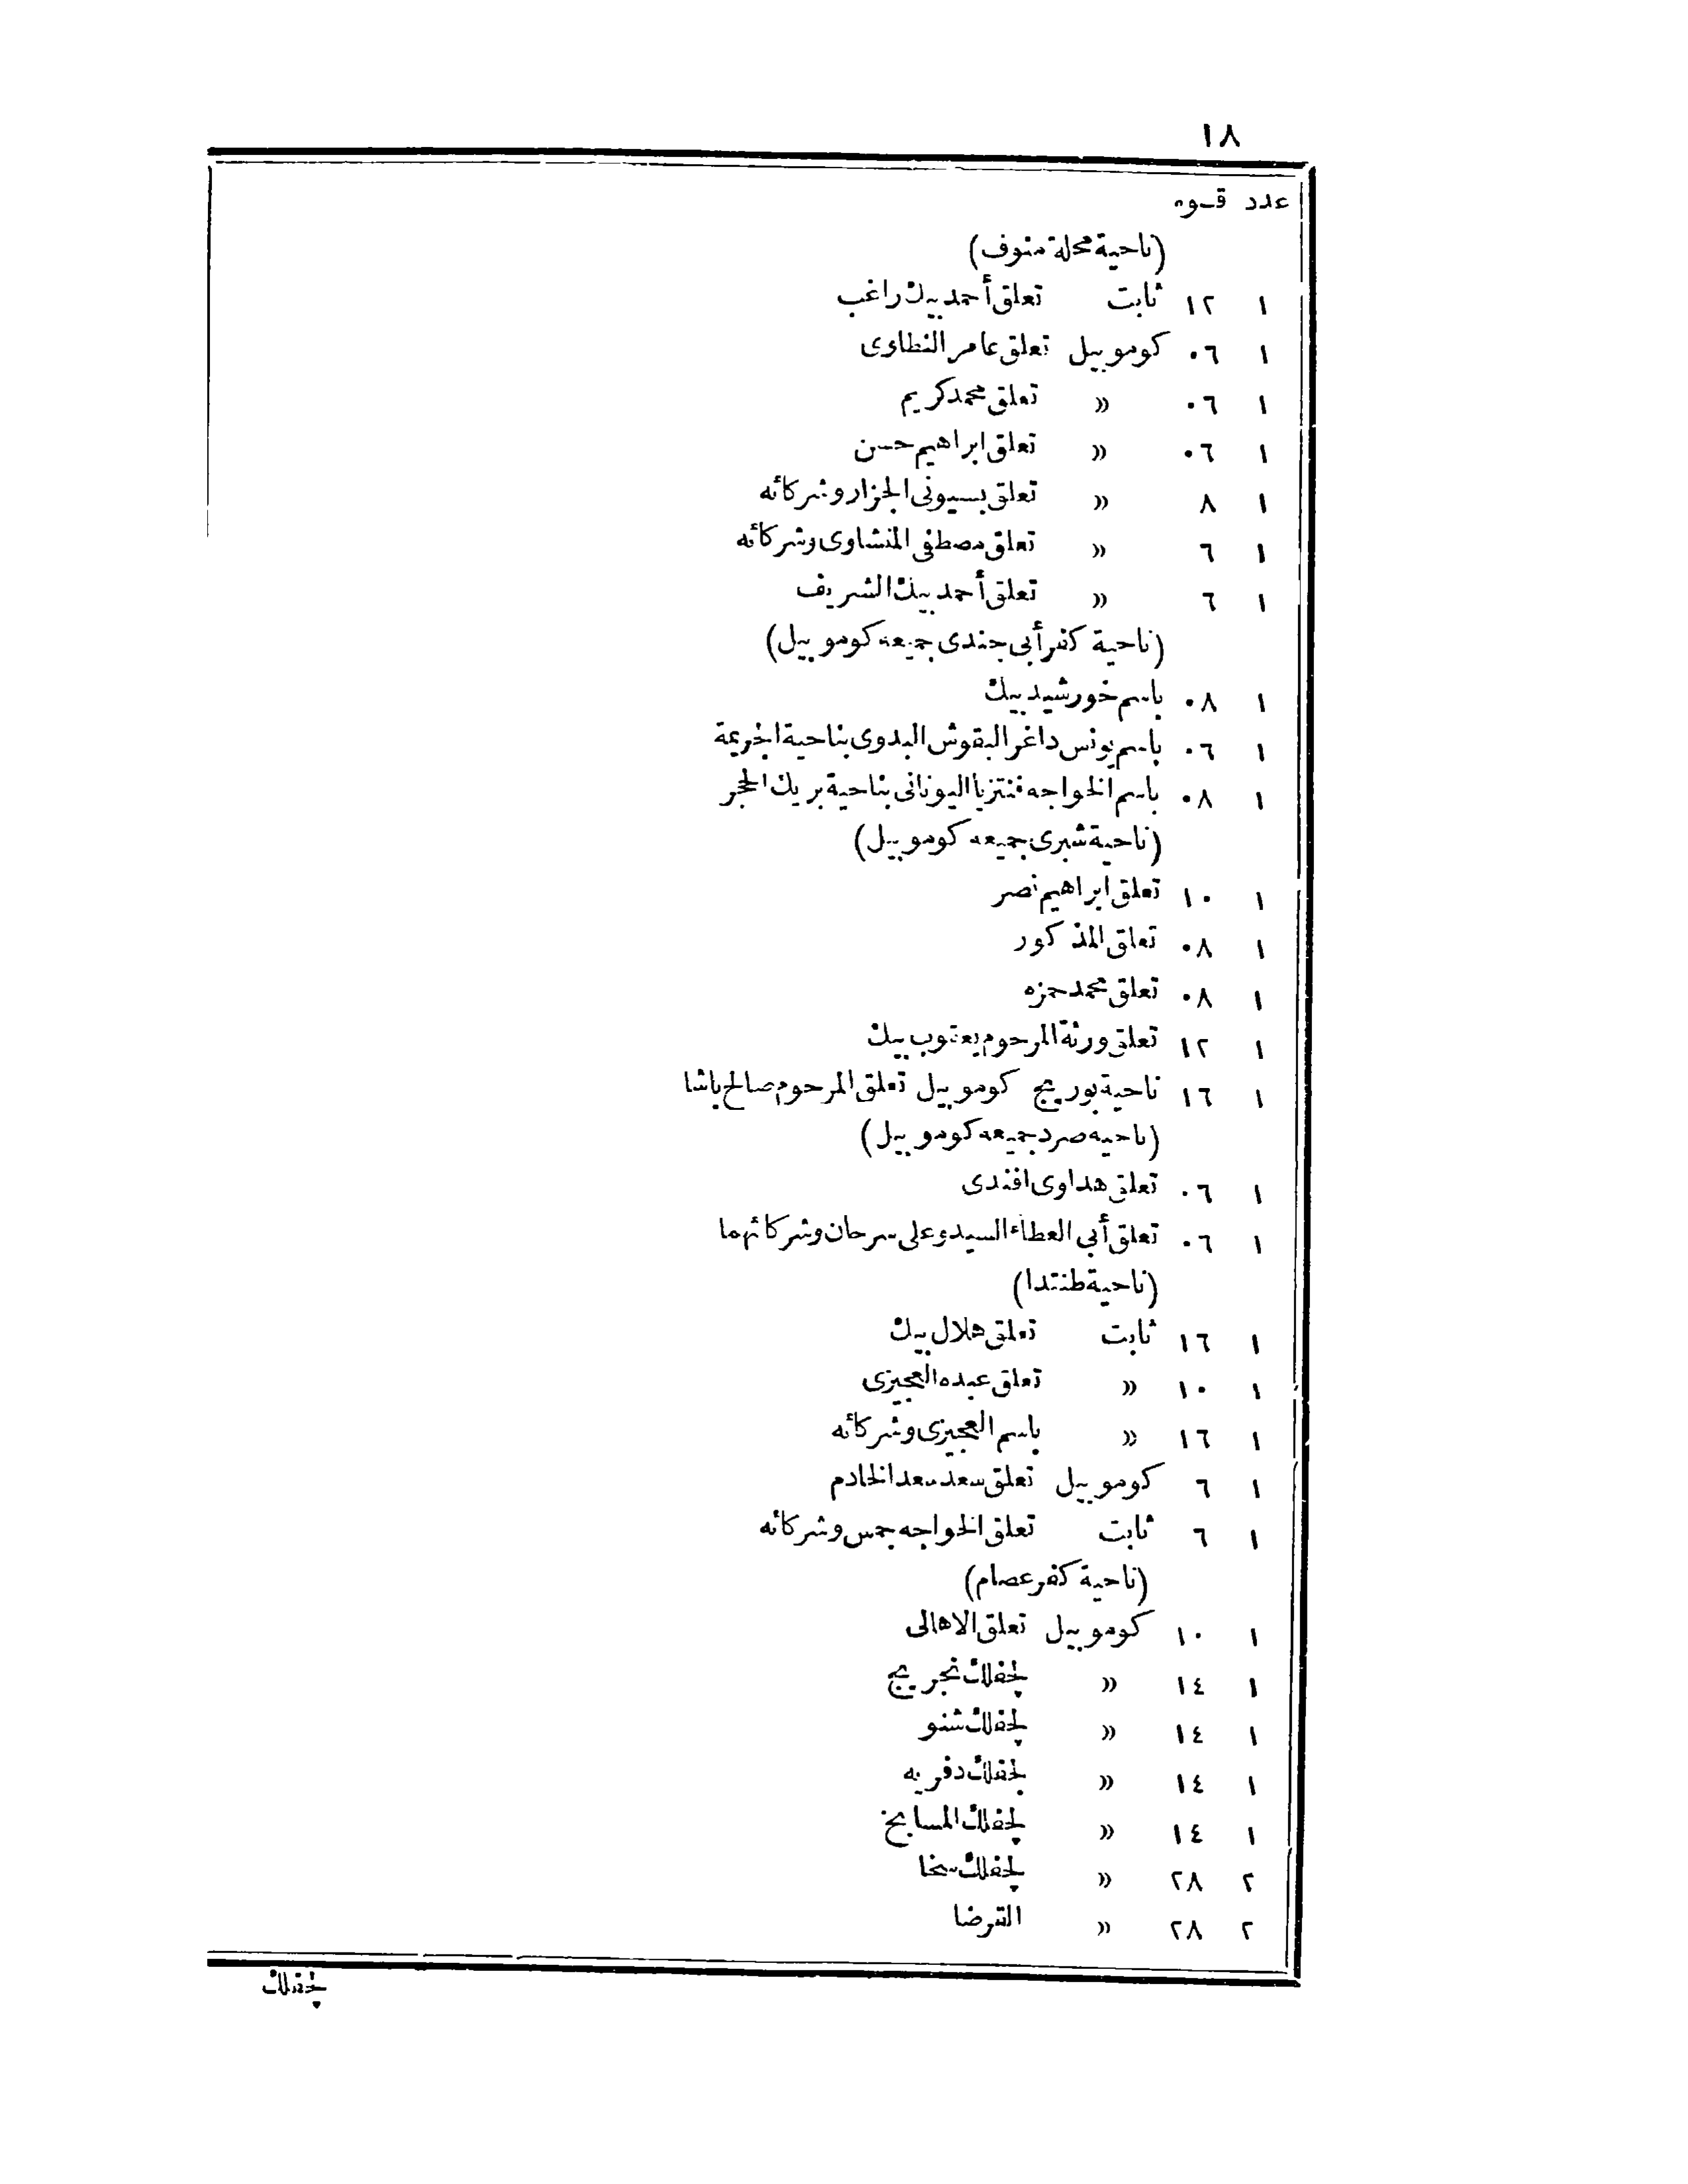 ١٨
عدد قـوه
(ناحية محلة منوف)
١ ١٢ ثابت تعلق أحمد بيك راغب
١ ٠٦ كوموبيل تعلق عامر النطاوى
١ ٠٦ » تعلق محمد كريم
١ ٠٦ » تعلق ابراهيم حسن
١ ٨ » تعلق بسيونى الجزار وشركائه
١ ٦ » تعلق مصطفى المنشاوى وشركائه
١ ٦ » تعلق أحمد بيك الشريف
(ناحية كفر أبى جندى جميعه كوموبيل)
١ ٠٨ باسم خورشيد بيك
١ ٠٦ باسم يونس داغر البقوش البدوى بناحية الخريمة
١ ٠٨ باسم الخواجه فنتزيا اليونانى بناحية بريك الحجر
(ناحية شبرى جميعه كوموبيل)
١ ١٠ تعلق ابراهيم نصر
١ ٠٨ تعلق المذكور
١ ٠٨ تعلق محمد حمزه
١ ١٢ تعلق ورثة المرحوم يعقوب بيك
١ ١٦ ناحية بوريج كوموبيل تعلق المرحوم صالح باشا
(ناحيه صرد جميعه كوموبيل)
١ ٠٦ تعلق هداوى افندى
١ ٠٦ تعلق أبى العطاء السيد وعلى سرحان وشركائهما
(ناحية طنتدا)
١ ١٦ ثابت تعلق هلال بيك
١ ١٠ » تعلق عبده العجيزى
١ ١٦ » باسم العجيزى وشركائه
١ ٦ كوموبيل تعلق سعد سعد الخادم
١ ٦ ثابت تعلق الخواجه جمس وشركائه
(ناحية كفر عصام)
١ ١٠ كوموبيل تعلق الاهالى
١ ١٤ » بجفلك نجريج
١ ١٤ » بجفلك شنو
١ ١٤ » بجفلك دفريه
١ ١٤ » بجفلك المسايخ
٢ ٢٨ » بجفلك سخا
٢ ٢٨ » القرضا
بجفلك